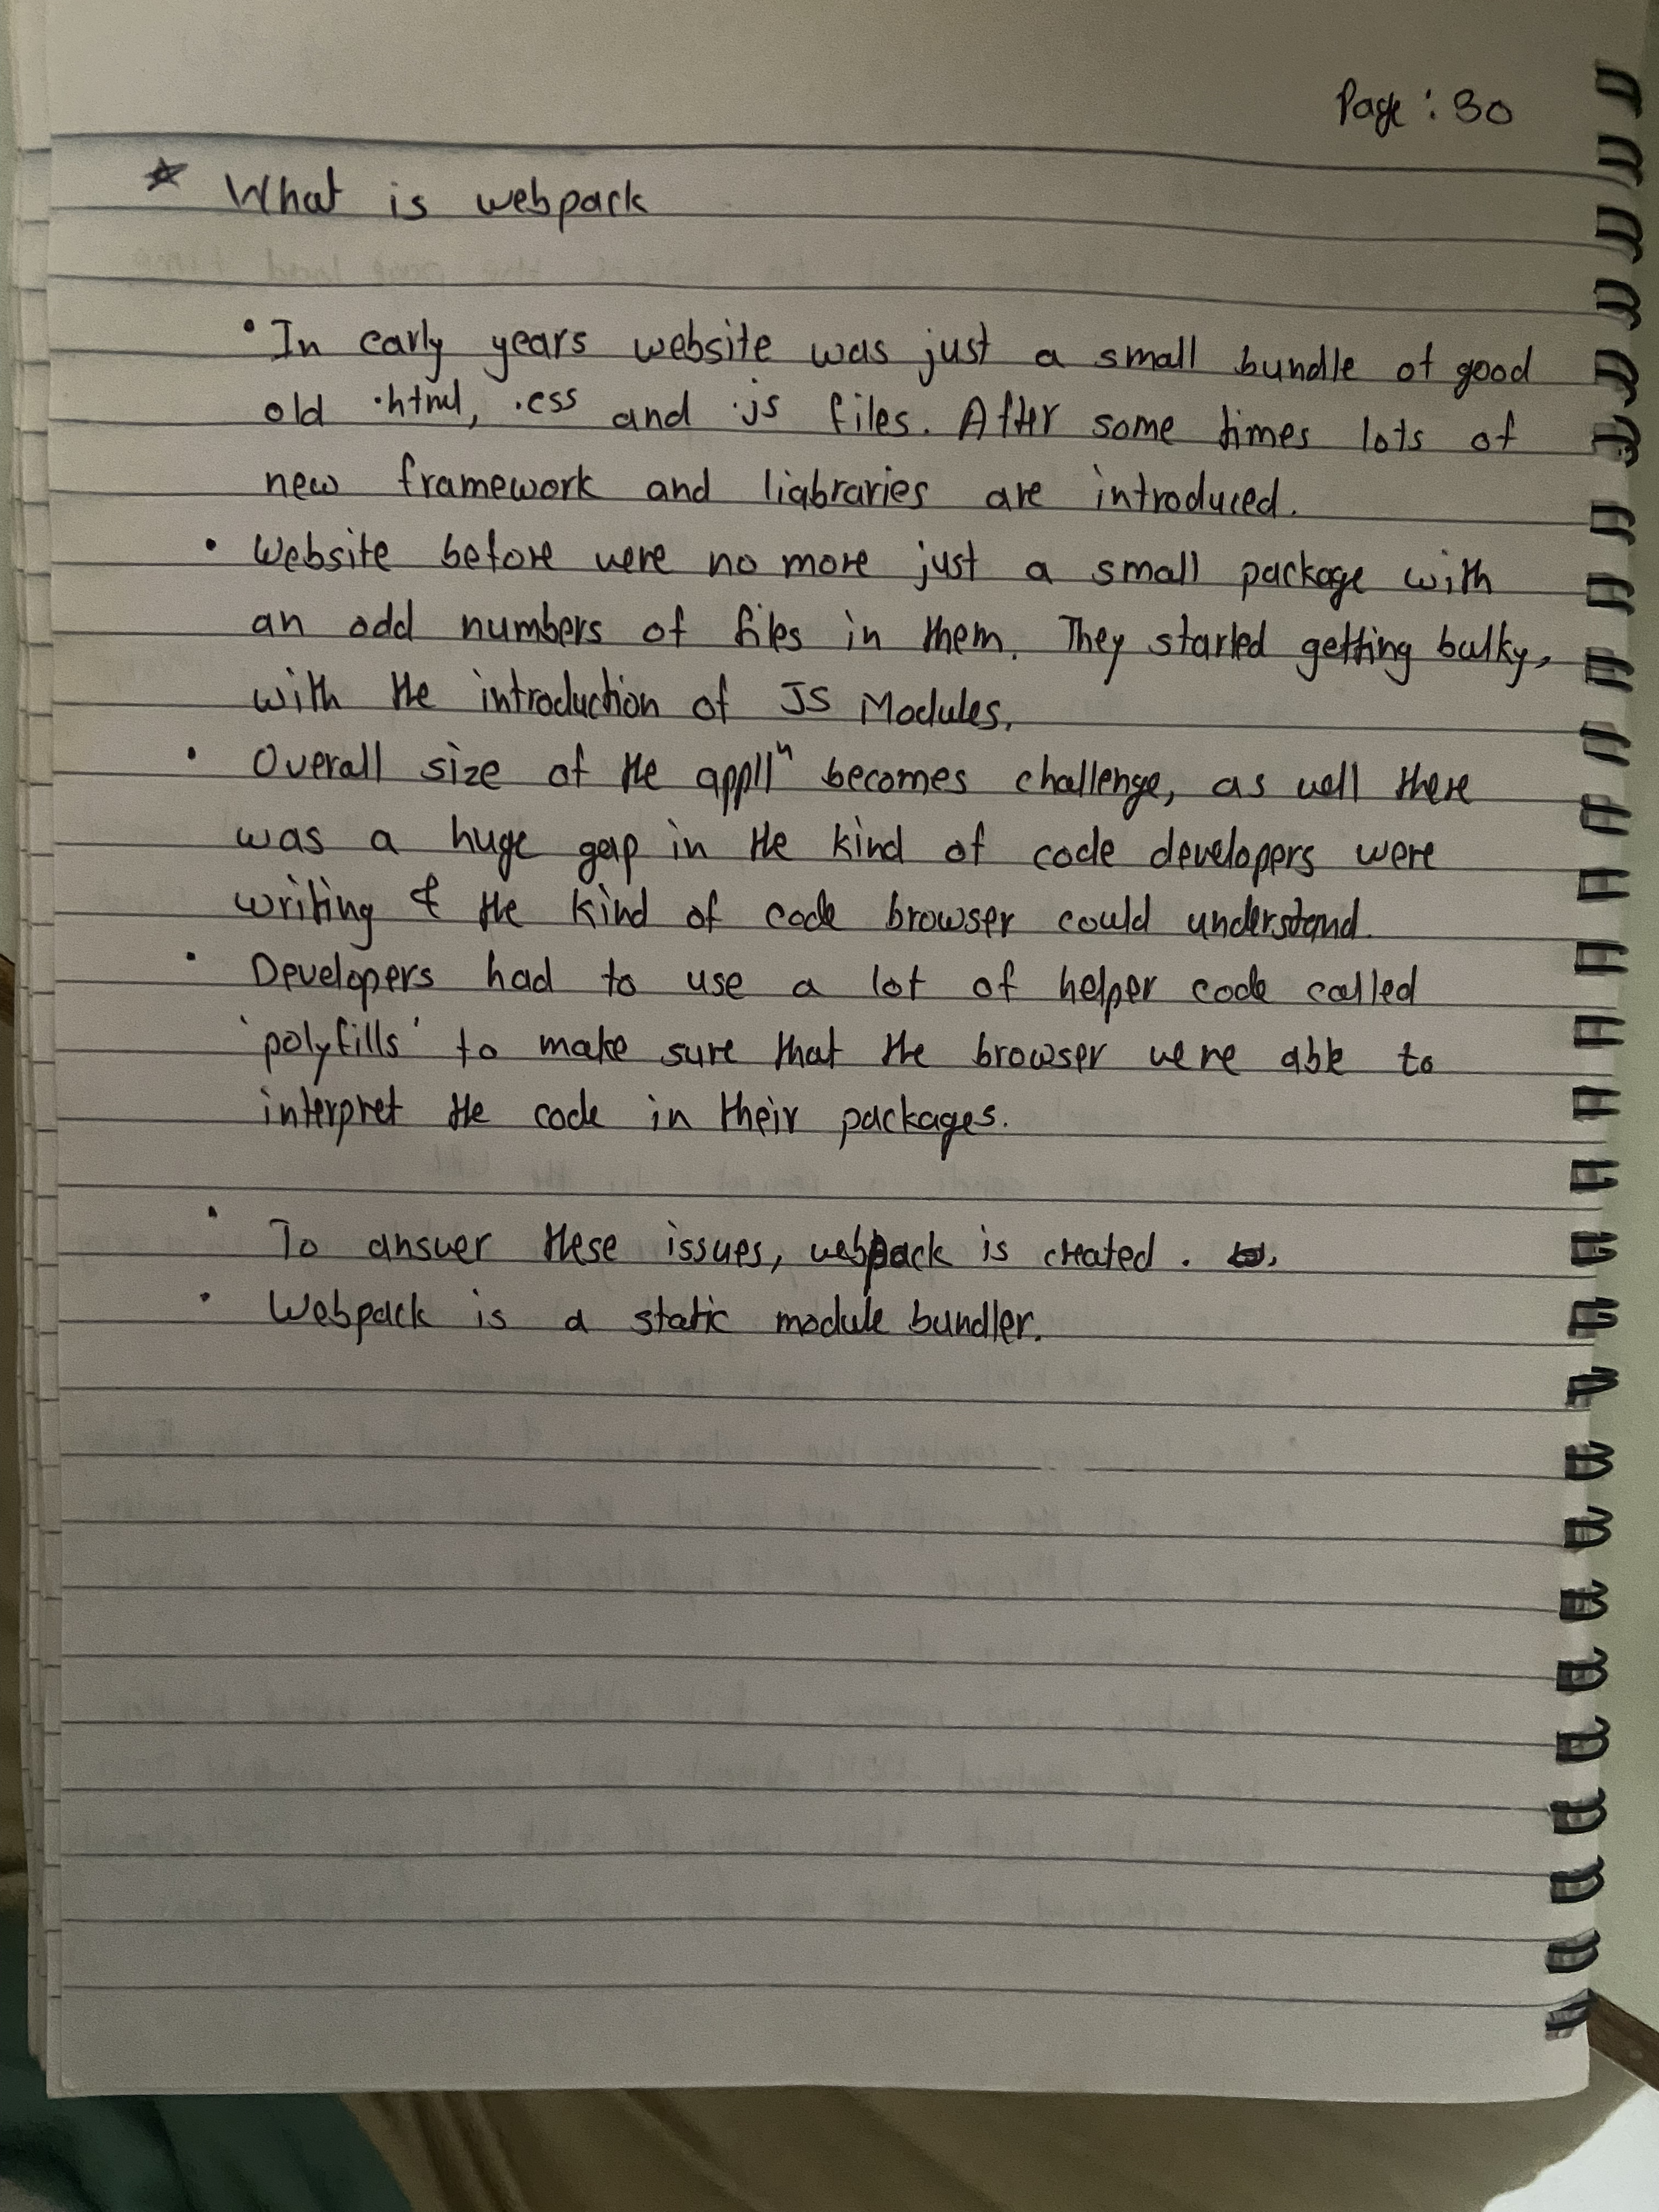 Page : 30
* What is webpack
• In early years website was just a small bundle of good
old .html, .css and .js files. After some times lots of
new framework and liabraries are introduced.
• Website before were no more just a small package with
an odd numbers of files in them. They started getting bulky,
with the introduction of JS Modules.
• Overall size of the applⁿ becomes challenge, as well there
was a huge gap in the kind of code developers were
writing & the kind of code browser could understand.
• Developers had to use a lot of helper code called
'polyfills' to make sure that the browser were able to
interpret the code in their packages.
• To answer these issues, webpack is created.
• Webpack is a static module bundler.